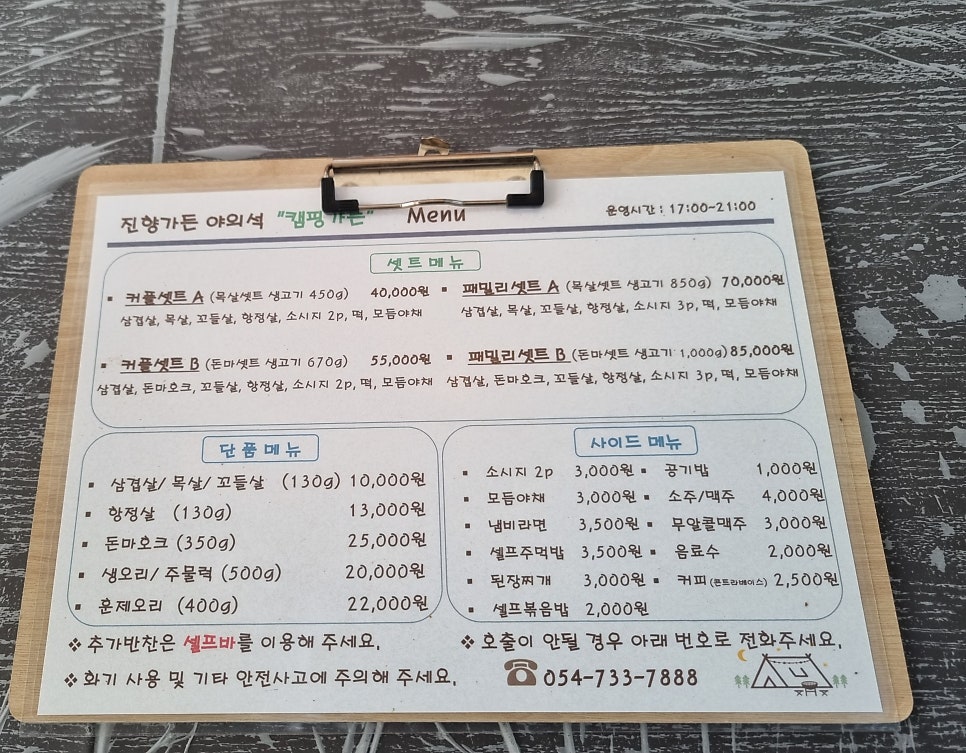 진향가든 야외석 "캠핑가든" Menu 운영시간 : 17:00~21:00
셋트메뉴
▪ 커플셋트 A (목살셋트 생고기 450g) 40,000원
삼겹살, 목살, 꼬들살, 항정살, 소시지 2p, 떡, 모듬야채
▪ 패밀리셋트 A (목살셋트 생고기 850g) 70,000원
삼겹살, 목살, 꼬들살, 항정살, 소시지 3p, 떡, 모듬야채
▪ 커플셋트 B (돈마셋트 생고기 670g) 55,000원
삼겹살, 돈마호크, 꼬들살, 항정살, 소시지 2p, 떡, 모듬야채
▪ 패밀리셋트 B (돈마셋트 생고기 1,000g) 85,000원
삼겹살, 돈마호크, 꼬들살, 항정살, 소시지 3p, 떡, 모듬야채
단품메뉴
▪ 삼겹살/ 목살/ 꼬들살 (130g) 10,000원
▪ 항정살 (130g) 13,000원
▪ 돈마호크 (350g) 25,000원
▪ 생오리/ 주물럭 (500g) 20,000원
▪ 훈제오리 (400g) 22,000원
사이드 메뉴
▪ 소시지 2p 3,000원 ▪ 공기밥 1,000원
▪ 모듬야채 3,000원 ▪ 소주/맥주 4,000원
▪ 냄비라면 3,500원 ▪ 무알콜맥주 3,000원
▪ 셀프주먹밥 3,500원 ▪ 음료수 2,000원
▪ 된장찌개 3,000원 ▪ 커피(콘트라베이스) 2,500원
▪ 셀프볶음밥 2,000원
❖ 추가반찬은 셀프바를 이용해 주세요.
❖ 화기 사용 및 기타 안전사고에 주의해 주세요.
❖ 호출이 안될 경우 아래 번호로 전화주세요.
☎ 054-733-7888